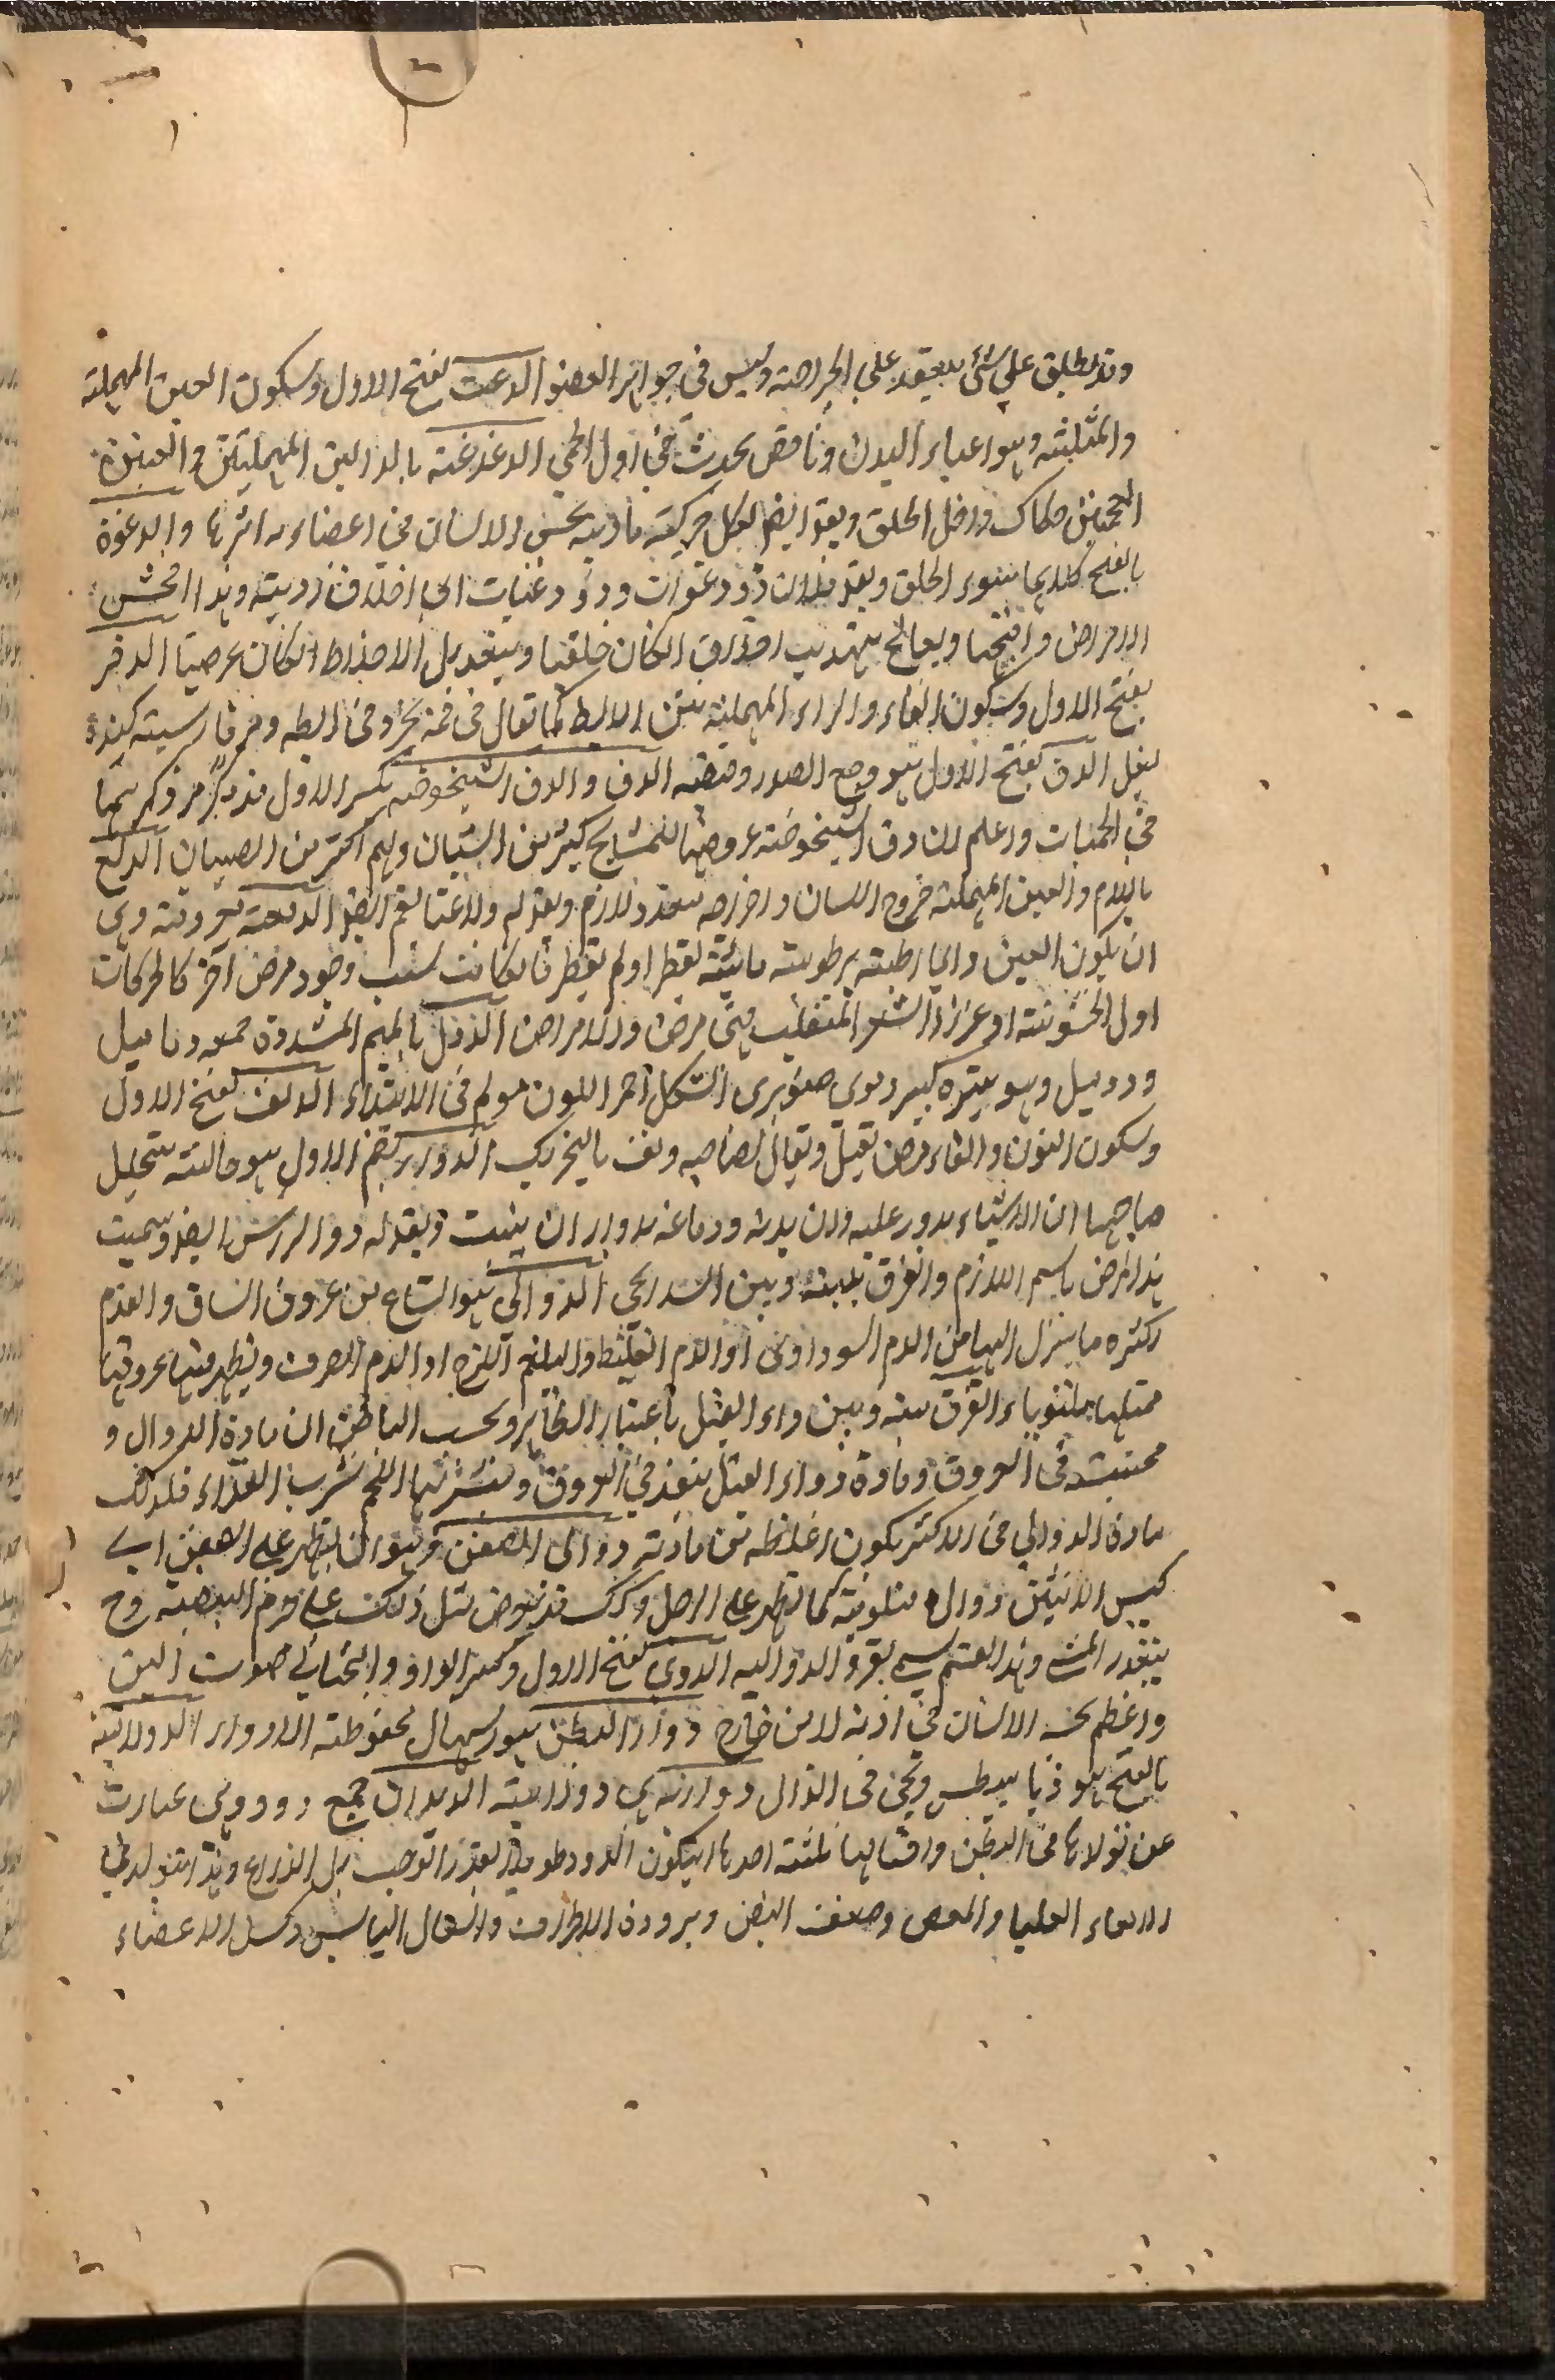 وقد يطلق على شئ ينعقد على الجراحة وليس فى جواهر العضو الدعث بفتح الاول وسكون العين المهملة
والمثلثة وهو اعياء البدن ونافض يحدث فى اول الحمى الدغدغة بالدالين المهملتين والغينين
المعجمتين حكاك داخل الحلق ويقو ايضا لكل حركة ماديه يحس الانسان فى اعضاءه اثرها والدغوة
بالفتح كلاهما سوء الخلق ويقو فلان ذو دغوات وذو دغيات اى اخلاق رديته وهذا افحش
الامراض واقبحها ويعالج بتهذيب اخلاق انكان خلقيا وبتعديل الاخلاط انكان عرضيا الدفر
بفتح الاول وسكون الفاء والراء المهملة نتن الابط كما يقال فى فمه بخر وفى ابطه دفر فارسيته كنده
بغل الدق بفتح الاول هو وجع الصدر الدق والدق الشيخوخة بكسر الاول قد مر ذكرهما
فى الحميات واعلم ان دق الشيخوخة عروضها للمشايخ كثير من الشبان ولهم اكثر من الصبيان الدلع
باللام والعين المهملة خروج اللسان واخراجه متعد ولازم ويقو له ايضو الدمعة معروفة وهى
ان يكون العين دائما رطبة برطوبة مائية يقطر او لم يقطر فانكانت بسبب وجود مرض آخر كالحركات
اول الخشونة او غرزا الشعر المنقلب فهى مرض الامراض الدمل بالميم المشددة جمعه دماميل
ودميل وهو بثرة كبير دموى صنوبرى الشكل احمر اللون مولم فى الابتداء الدنف بفتح الاول
وسكون النون والفاء مرض ثقيل ويقال لصاحبه دنف بالتحريك الدوار بضم الاول هو حالة يتخيل
صاحبها ان الاشياء يدور عليه وان بدنه ودماغه يدوران ان يثبت ويقو له دوار الراس ايضو وسميت
هذا المرض باسم اللازم والفرق بينه وبين السدر الدوالى هو اتساع من عروق الساق والقدم
لكثرة ما ينزل اليها من الدم السوداوى او الدم الغليظ والبلغم اللزج او الدم الصرف ويظهر فيها عروقها
ممتليها ملتوية الفرق بينه وبين داء الفيل باعتبار الظاهر وبحسب الباطن ان مادة الدوال و
محتبسة فى العروق ومادة داء الفيل ينفذ فى العروق اللحم شرب الغذاء فلذلك
مادة الدوالى فى الاكثر يكون اغلظ من مادته دوالى الصفن وهو ان يظهر على الصفن اى
كيس الانثيين دوال ملتوية كما يظهر على الرجل وكذلك قد يعرض مثل ذلك على جرم البيضة وح
يتعذر المشى وهذا القسم يسمى بقرو الدوالية الدوى بفتح الاول وكسر الواو والتحتانى صوت الين
واعظم يحس الانسان فى اذنه لا من خارج دوار البطن هو اسهال محفوظة الادوار الدولابية
بالفتح هو ذيابيطس ويجئ فى الذال دوارية هى دوارية الديدان جمع دود وهى عبارت
عن تولدها فى البطن واقسامها ثلثة احدها يتكون الدود طويلا بقدر الوجب بل الذراع وهذا يتولد فى
الامعاء العليا والمعص وضعف النبض وبرودة الاطراف والسعال اليابس وكسل الاعضاء